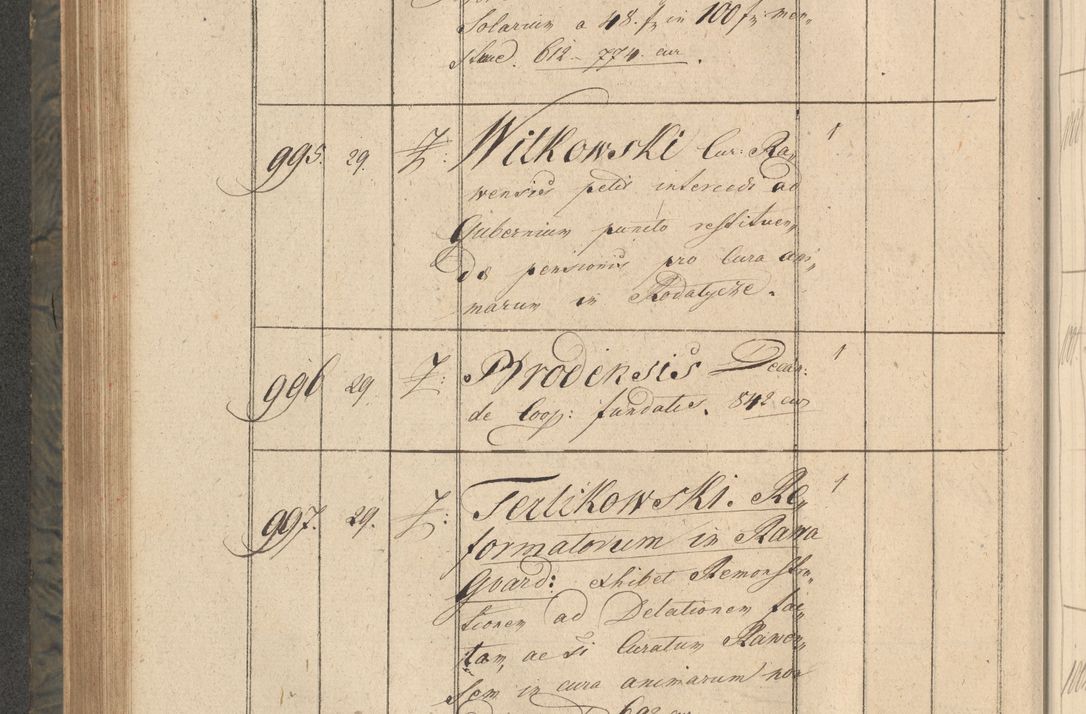 Solarium a 48. fr in 100 fr men„
strue. 612 – 774. cur.
995. 29. Z: Wilkowski Cur: Ra„ 1
wensis petit intercedi ad
Gubernium puncto restituen„
dæ pensionis pro Cura ani„
marum in Rodatycze.
996 29. Z: Brodensis Decan: 1
de Coop: fundatis. 842 cur
997. 29. Z: Terlikowski. Re„ 1
formatorum in Rawa
Guard: exhibet Remonstra„
tionem ad Delationem fac„
tam, ac si Curatum Rawen„
sem in cura animarum non
692 cur